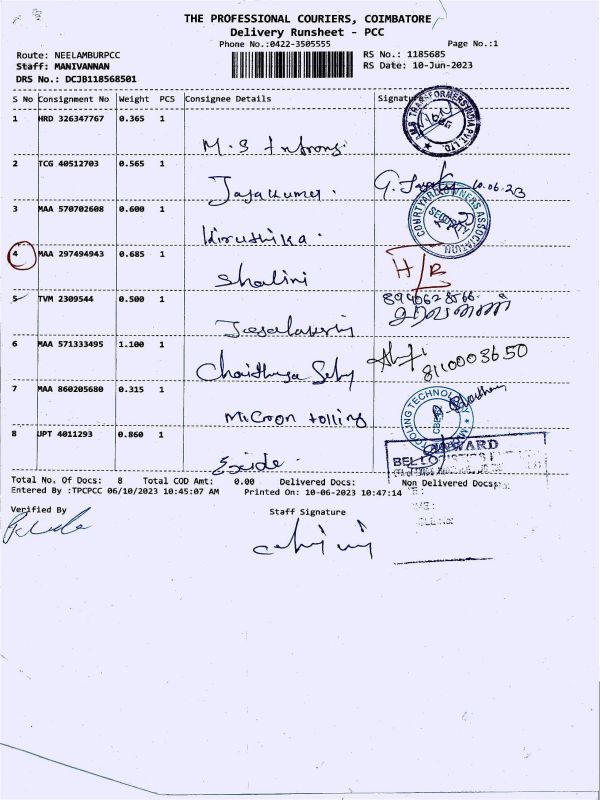 THE PROFESSIONAL COURIERS, COIMBATORE
Delivery Runsheet - PCC
Phone No.:0422-3505555
Page No.:1
Route: NEELAMBURPCC
RS No.: 1185685
Staff: MANIVANNAN
RS Date: 10-Jun-2023
DRS No.: DCJB118568501
S No Consignment No Weight PCS Consignee Details Signature
1 HRD 326347767 0.365 1
M.S
2 TCG 40512703 0.565 1
Jayakumar. 10.06.23
3 MAA 570702608 0.600 1
Kiruthika.
COURTYARD OWNERS ASSOCIATION
SECURITY
4 MAA 297494943 0.685 1
Shalini
H/R
5 TVM 2309544 0.500 1
சரவணன்
6 MAA 571333495 1.100 1
8110003650
7 MAA 860205680 0.315 1
Micron tolling
8 JPT 4011293 0.860 1
Exide.
INWARD
Total No. Of Docs: 8 Total COD Amt: 0.00 Delivered Docs: Non Delivered Docs:
Entered By :TPCPCC 06/10/2023 10:45:07 AM Printed On: 10-06-2023 10:47:14
Verified By
Staff Signature